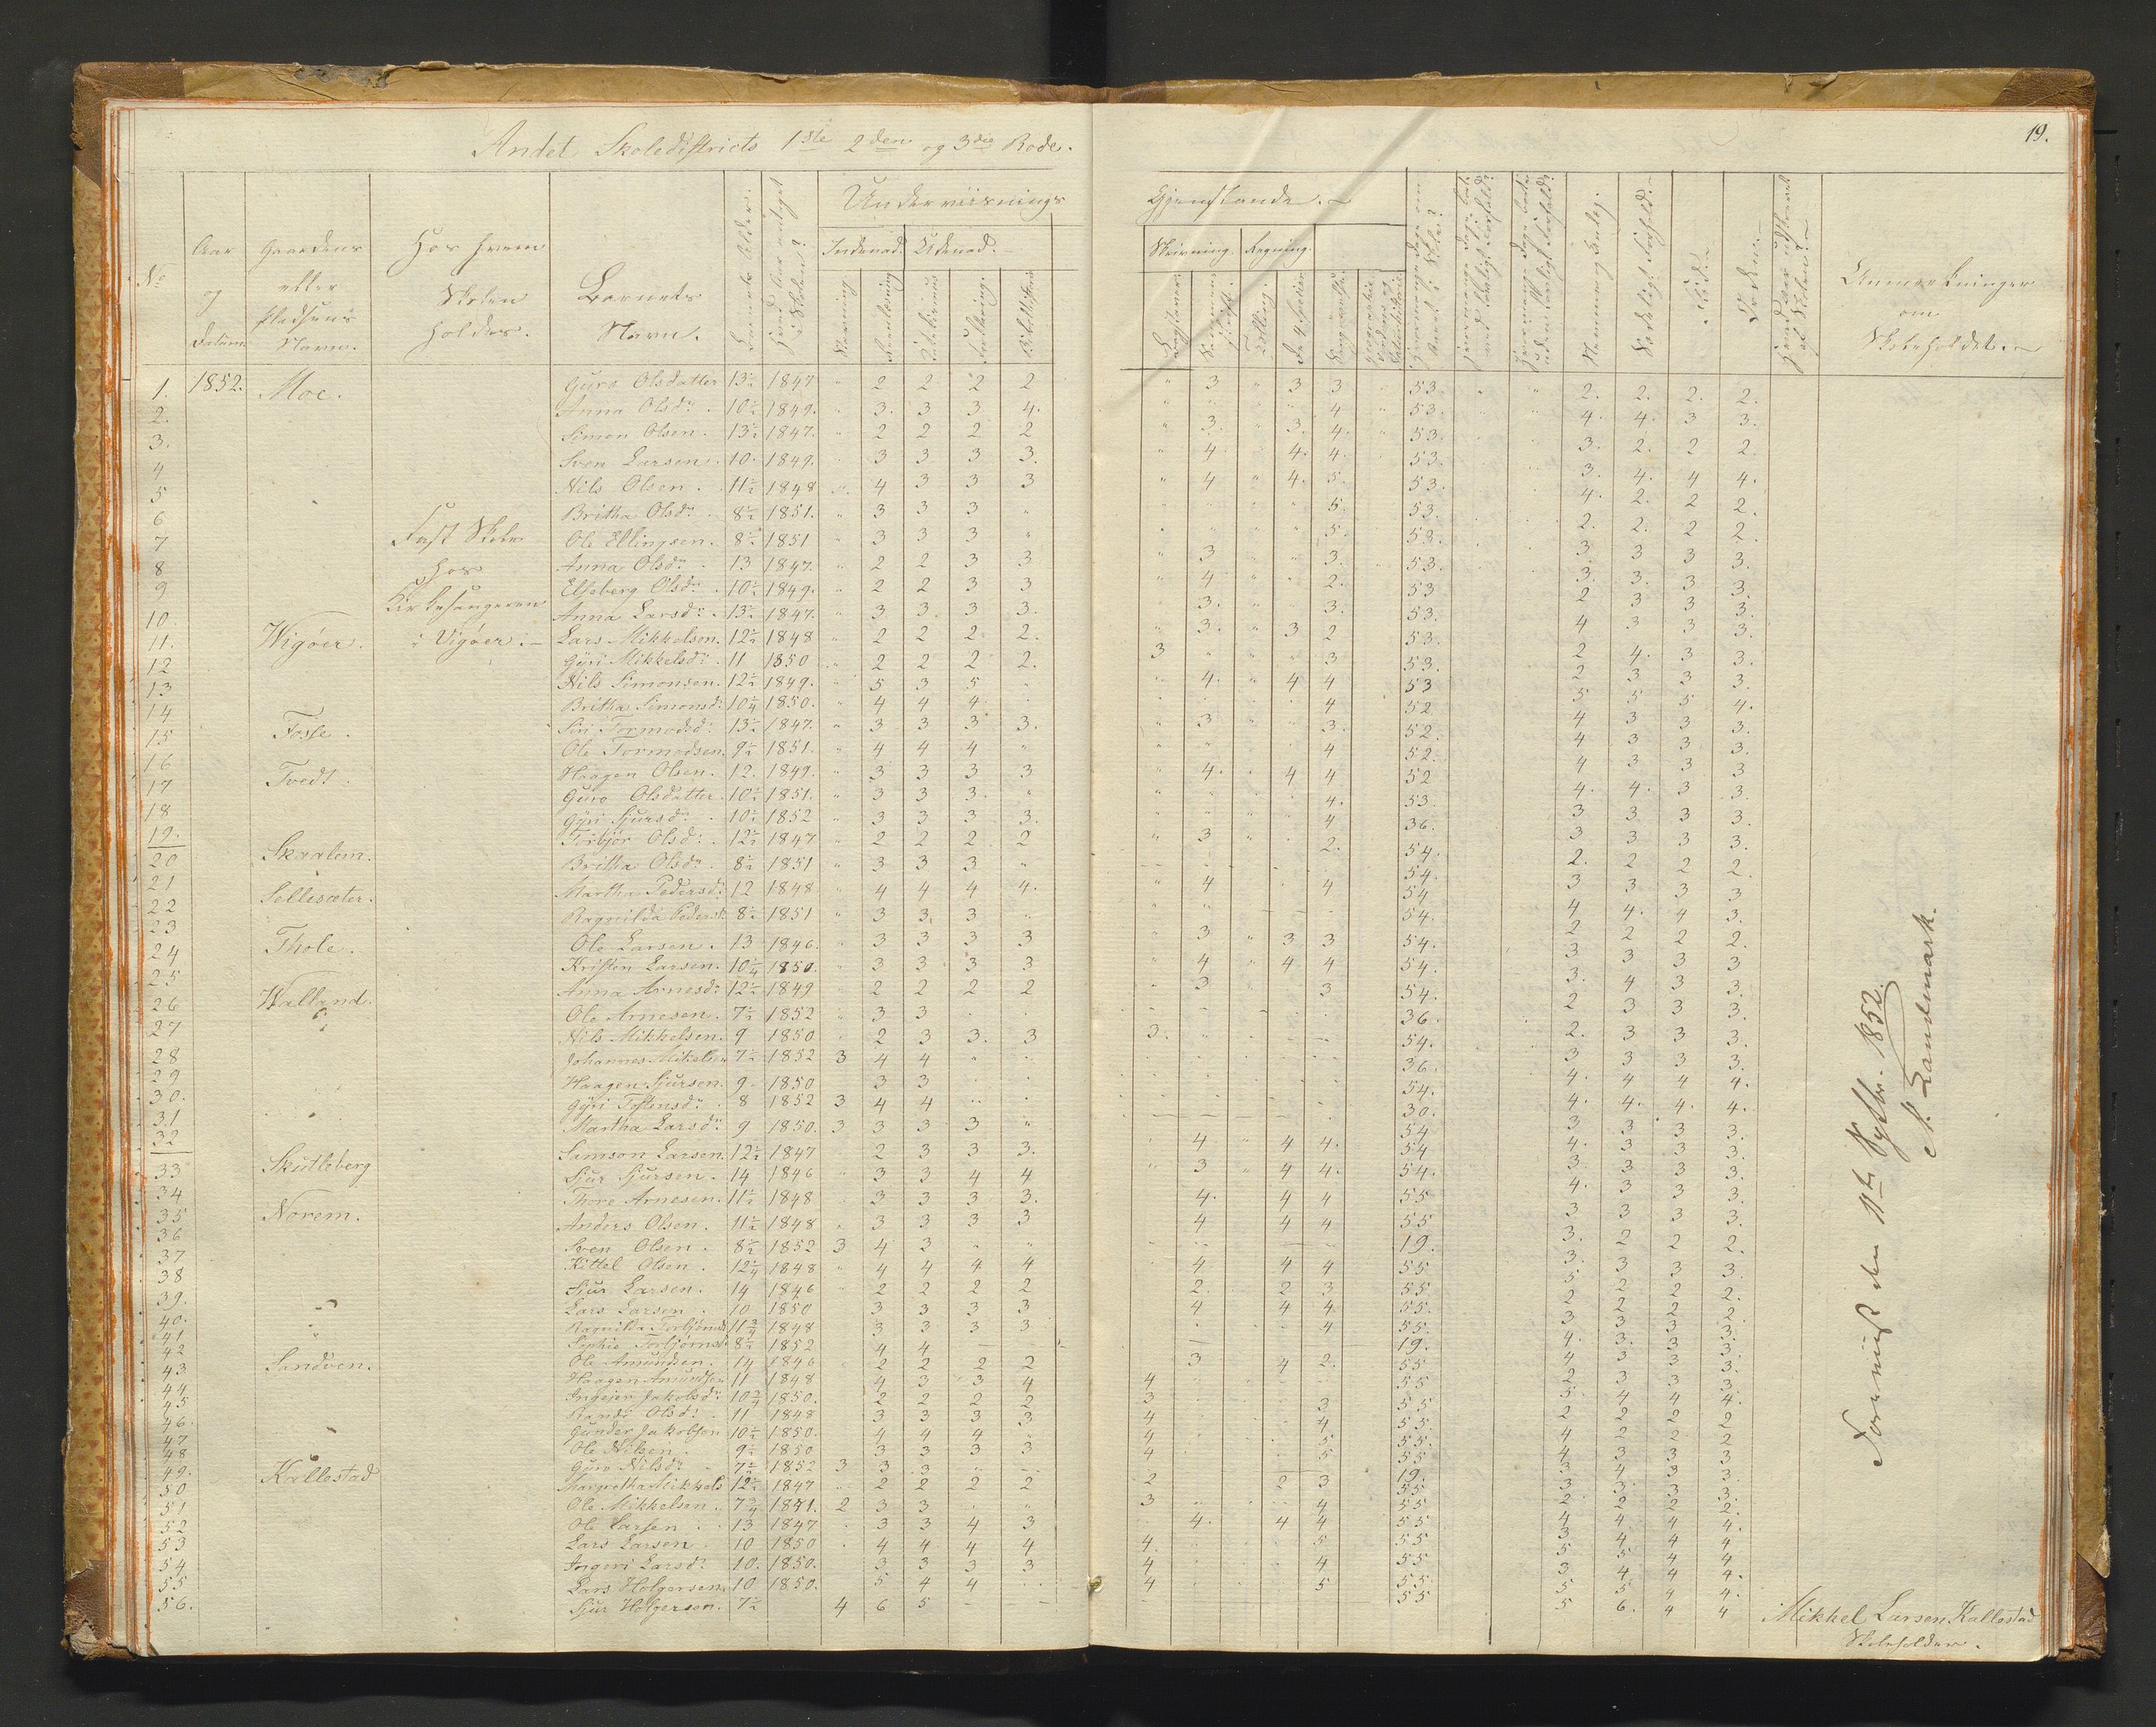 Andet Skoledistricts 1ste 2den og 3die Rode.
19.
No
Aar og Datum
Gaardens eller Pladsens Navn.
Hos hvem Skolen holdes.
Barnets Navn.
Barnets Alder.
Underviisnings Gjenstande.
Indenad. Udenad.
Skrivning. Regning.
Stavning
Forklaring.
Anmærkninger om Skoleholdet.
1. 1852. Moe. Guro Olsdatter 13½ 1847 " 2 2 2 2 " 3 " 3 3 53. 2. 2. 2. 2.
2. Anna Olsdr. 10½ 1849. " 3. 3 3 4. 4 53. 4. 4. 3 3.
3. Simon Olsen. 13½ 1847. " 2 2 2 2 " 3. 3. 4. 53. 3. 2. 2 2.
4 Sven Larsen. 10. 1849. 3 3 3 3. " 4 4. 4. 53. 3. 4. 4 4.
5 Nils Olsen. 11½ 1848 " 4 3 3 3 " 4 " 4. 5. 53. 4. 2. 2 2.
6 Britha Olsdr. 8½ 1851. " 3 3 3 " 5. 53. 2. 2. 2 2.
7 Fast Skole Ole Ellingsen. 8½ 1851 " 3 3 3 " 5. 53. 3. 3 3 3.
8 hos Anna Olsdr. 13 1847. " 2 2 3 3 " 3 3. 53. 3. 3. 3 3.
9 Kirkesangeren Elseberg Olsdr. 10½ 1849. " 2 2 3 3 " 4 2. 53 2 3 3 3.
10. Anna Larsdr. 13½ 1847. " 3 3. 3 3. " 3. 3. 53. 4 3 3 3.
11. Wigøer. i Vigøer. Lars Mikkelsen. 12½ 1848 " 2 2 2 2. " 3. 3 2 53. 2 4. 3 3.
12 Gyri Mikkelsdr. 11 1850 " 2 2 2 2. 3 3 53. 2 3 3 3.
13 Nils Simonsen. 12½ 1849. " 5 3 5 4. 4 4 53 5 5 5 4.
14 Britha Simonsdr. 10¼ 1850. " 4 4 4 4 52 4 3 3 3.
15 Fosse. Siri Tormodsdr. 13½ 1847. " 3 3 3 3. " 3 3. 52. 4 3 3 3.
16 Ole Tormodsen. 9½ 1851. " 4 4 4 " 4 52. 4 3 3 3
17 Tvedt. Haagen Olsen. 12. 1849. " 3 3 3 3 4. 4 4 52 4. 4. 3 3.
18 Guro Olsdatter. 10½ 1851. " 3 3 3. " 4. 53. 3 3 3 3.
19. Gyri Sjursdr. 10½ 1852 " 3 3 3 3. 4 36. 3 3 3 3.
20 Skaalem. Torbjør Olsdr. 12½ 1847 " 2 2 2 2 " 3 2. 54. 2. 2 2 2.
21 Britha Olsdr. 8½ 1851 " 3 3 3 " 54. 3 3 3 3
22 Sellesæter. Martha Pedersdr. 12 1848 " 4 4 4 4. " 4 4 54 4 4. 4 3.
23 Ragnilda Pedersd. 8½ 1851 " 3 3 3 54. 2 2 2 2.
24 Thole. Ole Larsen. 13 1846. " 3 3 3 3 " 3 3 3 54. 3 3 3 3
25 Kristen Larsen. 10¼ 1850. " 3 3 3 3 " 4 4 4 54. 3. 4 3 3.
26 Walland. Anna Arnesdr. 12½ 1849 2 2 2 2 " 3 3 54. 2 3 3 3.
27 Ole Arnesen. 7½ 1852 3 3 36. 2. 3 3 3.
28 Nils Mikkelsen. 9 1850 2 3 3. 3 3. 54. 3 3 3 3.
29 Johannes Mikelsen 7½ 1852 3 4 4 36. 4. 4 4 4.
30. Haagen Sjursen. 9 1850 3 3 54. 4. 4. 4. 4.
31 Gyri Tostensdr. 8 1852 3 4 4 30. 3 3 3 3.
32 Martha Larsdr. 9 1850. 3 3 3 3 " 54 4. 3 3 3.
33 Skutleberg Samson Larsen. 12½ 1847 2 3 3 3. 4 4 4. 54 3. 3 3 3.
34 Sjur Sjursen. 14 1846 3 3 4 4 3 4 4. 54. 4. 3 3 3.
35 Norem. Thore Arnesen. 11½ 1848 3 3 3 3. 4. 4 4 55 3 3 3 3.
36 Anders Olsen. 11½ 1848 3 3 3 3 4 4 4 55 3. 2 2 2.
37 Sven Olsen. 8½ 1852 3 4 3 19. 3. 3 3 3.
38 Kittel Olsen. 12¼ 1848 4 4 4 4 4 4 4 55 5 2 2 2.
39. Sjur Larsen. 14 1846 2 2 2 2 2. 2 3 55 2 2 2 2.
40. Lars Larsen. 10 1850 3 3 3 3 4 4 4 55. 3 3 3 3.
41 Ragnilda Torbjørnsd. 11¾ 1848 3 3 3 3 4 55. 4. 3. 3 3.
42 Sophie Torbjørnsd. 8½ 1852 4 4 19. 4 3 3 3.
43 Sandven. Ole Amundsen. 14 1846 2 2 2 2 3 4 2. 55
44 Haagen Amundsen 11 1848 4 3 3 4 4 55
45 Ingejer Jakobsdr. 10¾ 1850. 2 2 2 2 3 3 55
46. Randi Olsdr. 11 1848 3 3 3 3 4 4 55.
47 Gunder Jakobsen 10½ 1850. 4 4 4 4 5 55.
48 Ole Nilsen. 9½ 1850 3 3 3 3 4 5 55
49. Kallestad Guro Nilsdr. 7½ 1852 3 3 3 19.
50 Margretha Mikkels 12½ 1847 2 2 2 2 2 2 3 55
51 Ole Mikkelsen. 7¾ 1851. 2 3 3 3 4 55
52 Ole Larsen. 13 1847 3 3 4 3 4. 4 4 55
53 Lars Larsen. 10 1850 4 4 4 4 4. 5 55
54 Ingeri Larsdr. 10. 1850. 3 3 3 3 4 4 55
55 Lars Holgersen. 10 1850. 5 4 4 4 5 55
56. Sjur Holgersen. 7½ 4 6 5 55 5 6. 4 4
Norum den 11te Septbr. 1852.
N. Landmark.
Mikkel Larsen Kallestad
Skoleholder.